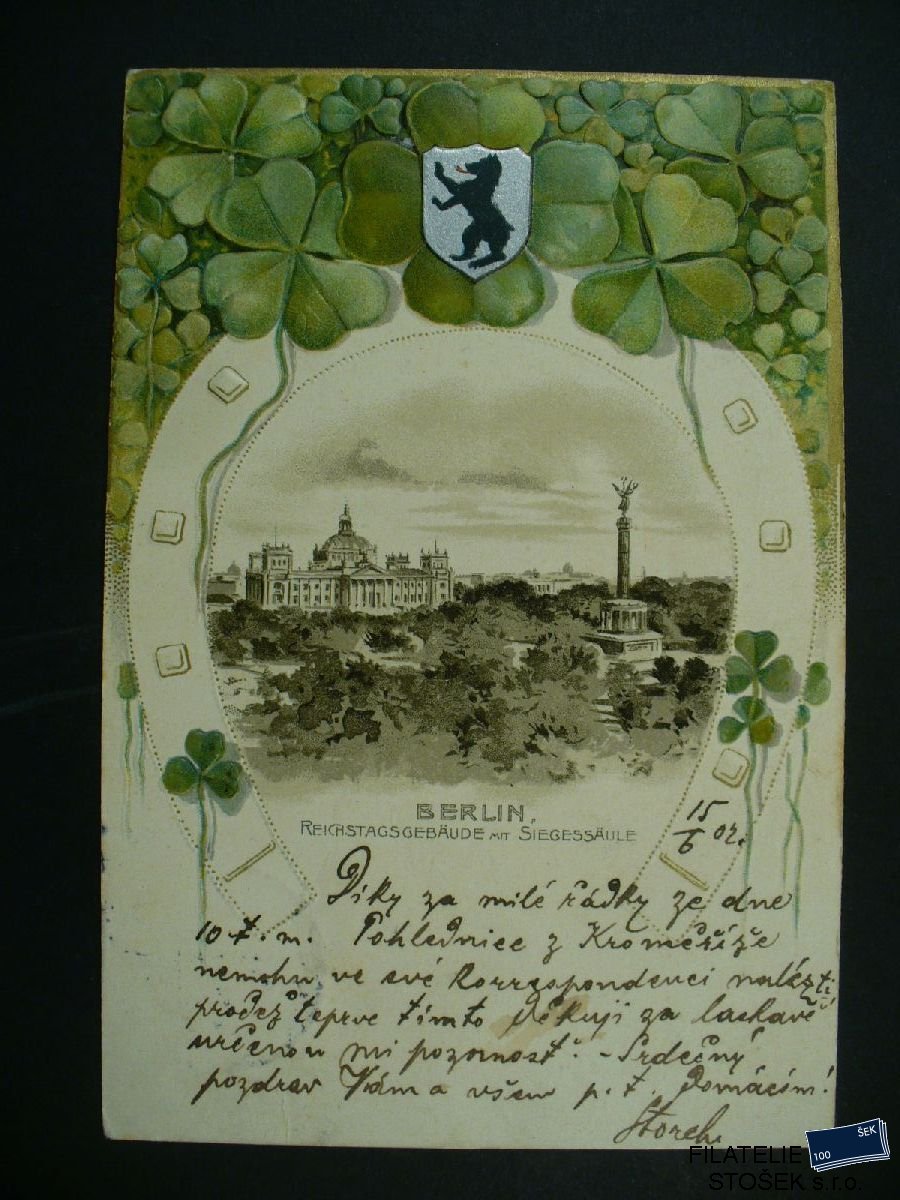 BERLIN,
REICHSTAGSGEBÄUDE MIT SIEGESSÄULE
15/6 02.
Díky za milé řádky ze dne
10. t. m. Pohlednice z Kroměříže
nemohu ve své korrespondenci nalézti
pročež teprve tímto děkuji za laskavě
určenou mi pozornost. - Srdečný
pozdrav Vám a všem p. t. domácím!
Storch
FILATELIE
STOŠEK s.r.o.
100
ŠEK